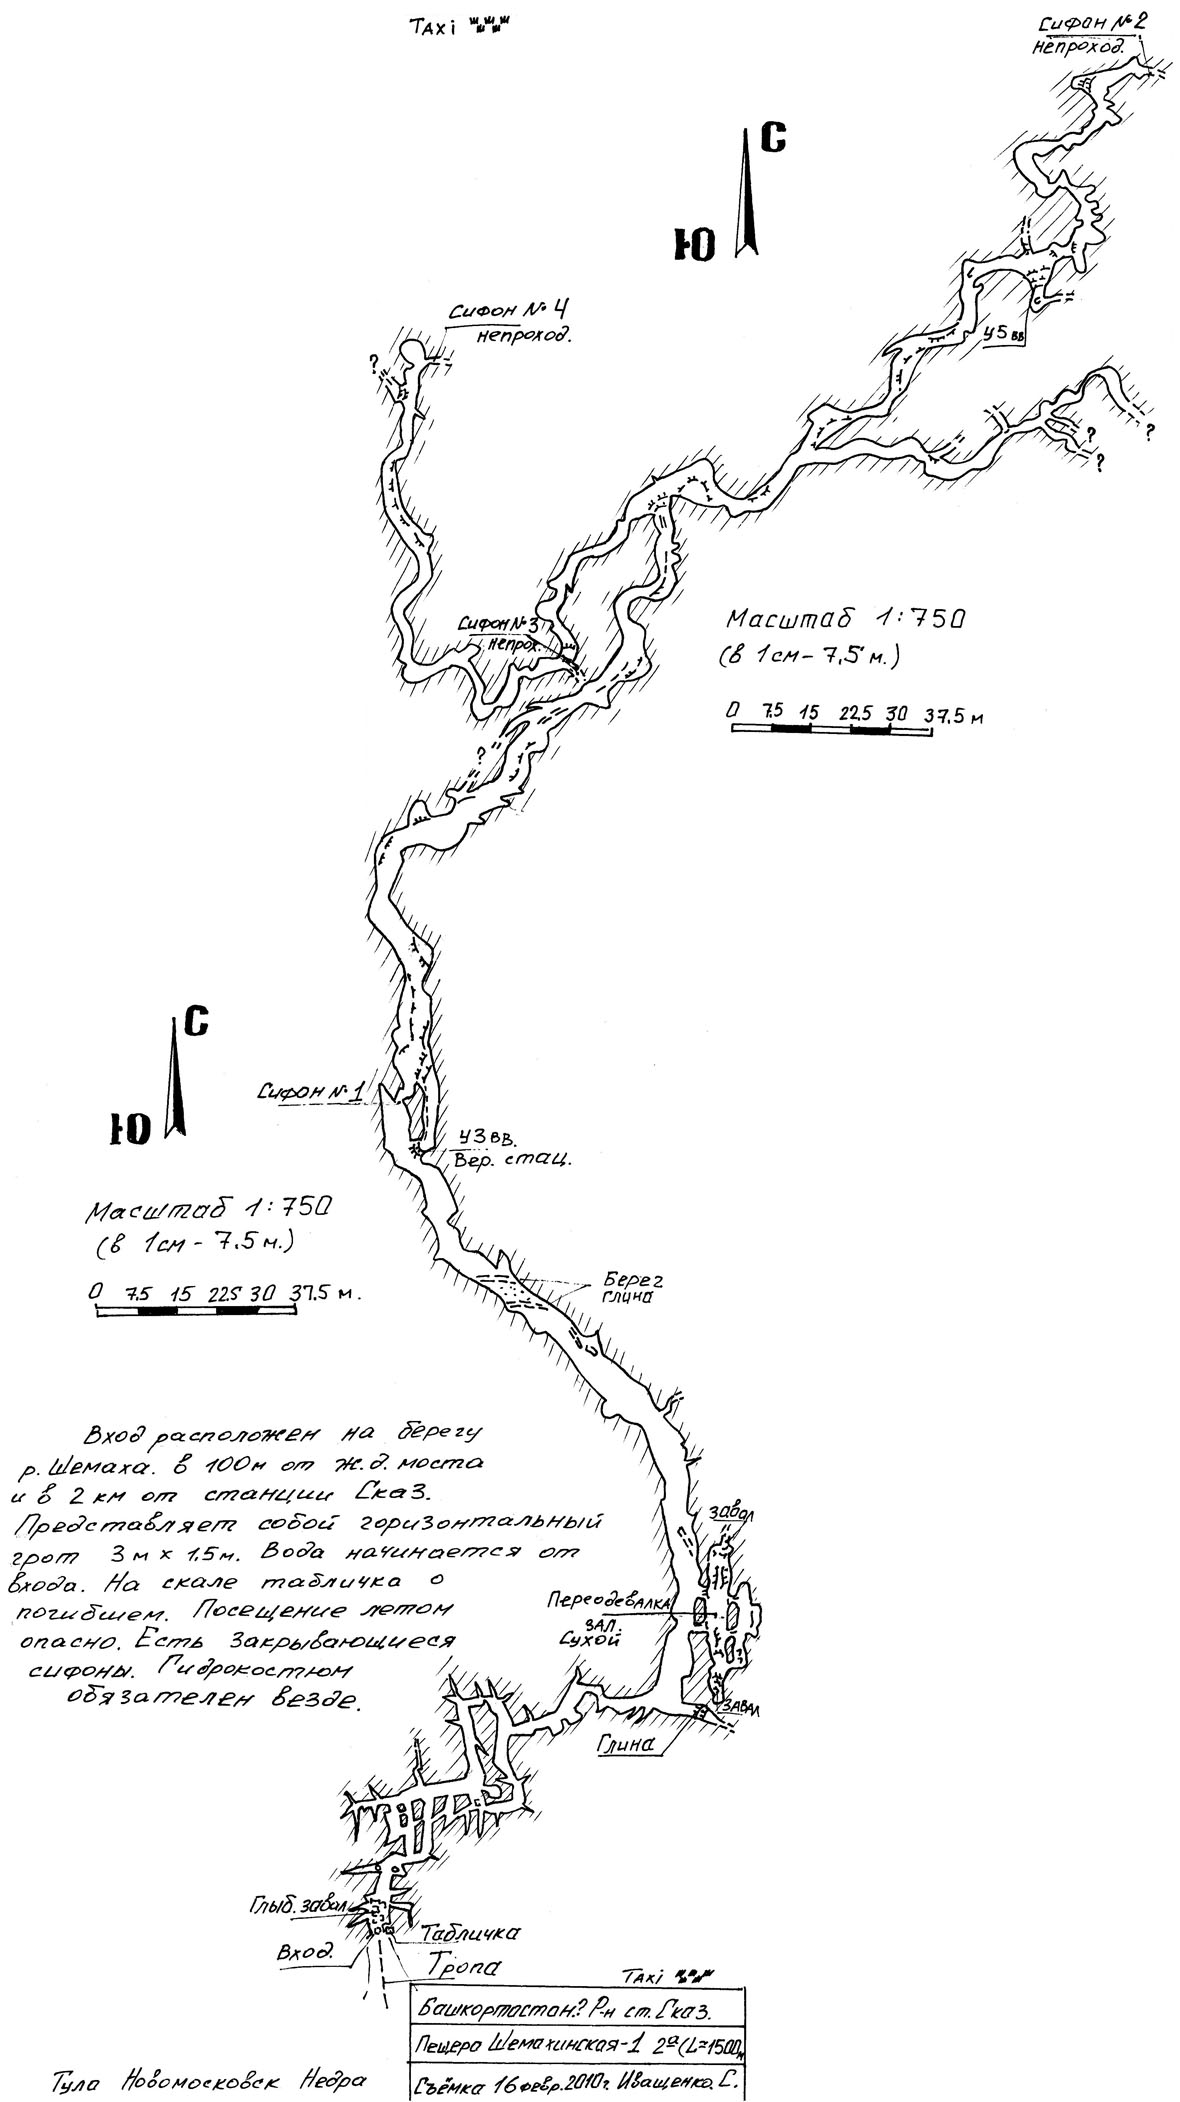 Taxi
Сифон №2
непроход.
С
Ю
Сифон №4
непроход.
?
У5 вв
?
?
?
Сифон №3
непрох.
Масштаб 1:750
(в 1см - 7,5 м.)
0 7.5 15 22.5 30 37.5 м
?
С
Ю
Сифон №1
У3 вв.
Вер. стац.
Масштаб 1:750
(в 1см - 7.5 м.)
0 7.5 15 22.5 30 37.5 м.
Берег
глина
Вход расположен на берегу
р. Шемаха. в 100м от ж.д. моста
и в 2 км от станции Сказ.
Представляет собой горизонтальный
грот 3м х 1.5м. Вода начинается от
входа. На скале табличка о
погибшем. Посещение летом
опасно. Есть закрывающиеся
сифоны. Гидрокостюм
обязателен везде.
Завал
Переодевалка
зал.
Сухой
Завал
Глина
Глыб. завал
Табличка
Вход.
Тропа
Taxi
Башкортостан? Р-н ст. Сказ.
Пещера Шемахинская-1 2а (L=1500м
Съёмка 16 февр. 2010г. Иващенко. С.
Тула Новомосковск Недра